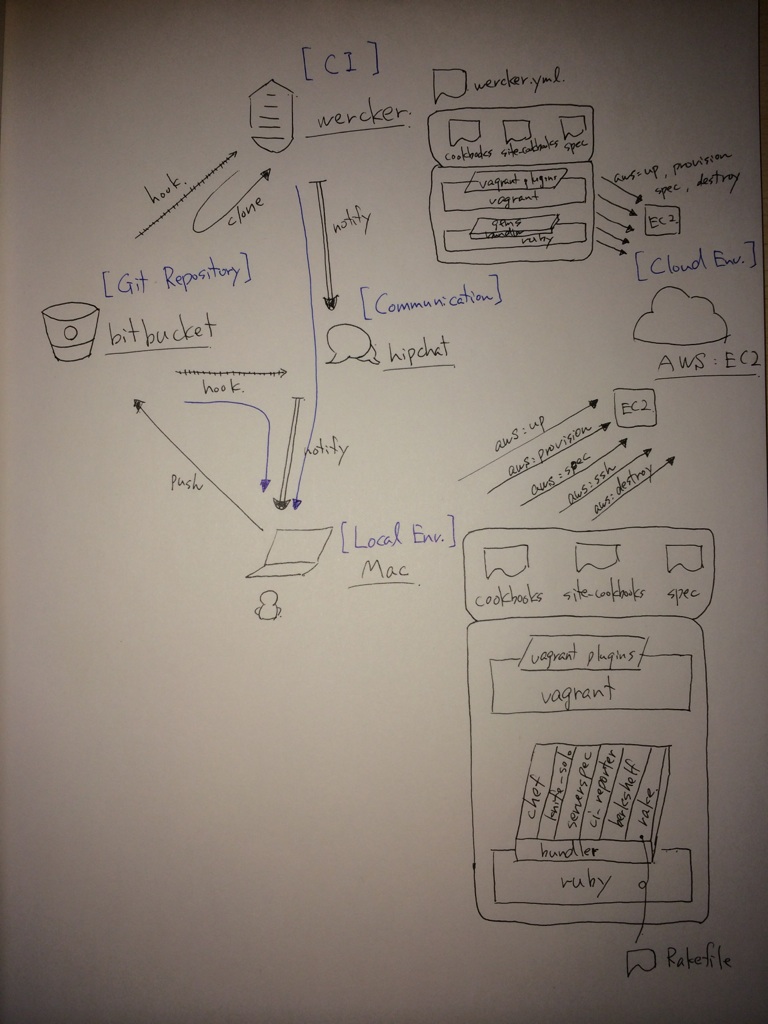 [CI]
wercker.
wercker.yml.
cookbooks
site-cookbooks
spec
vagrant plugins
vagrant
gems
bundler
ruby
aws:up, provision
spec, destroy
EC2
hook.
clone
notify
[Git Repository]
bitbucket
[Communication]
hipchat
[Cloud Env.]
AWS:EC2
hook.
notify
push
EC2
aws:up
aws:provision
aws:spec
aws:ssh
aws:destroy
[Local Env.]
Mac
cookbooks
site-cookbooks
spec
vagrant plugins
vagrant
chef
knife-solo
serverspec
ci-reporter
berkshelf
rake
bundler
ruby
Rakefile